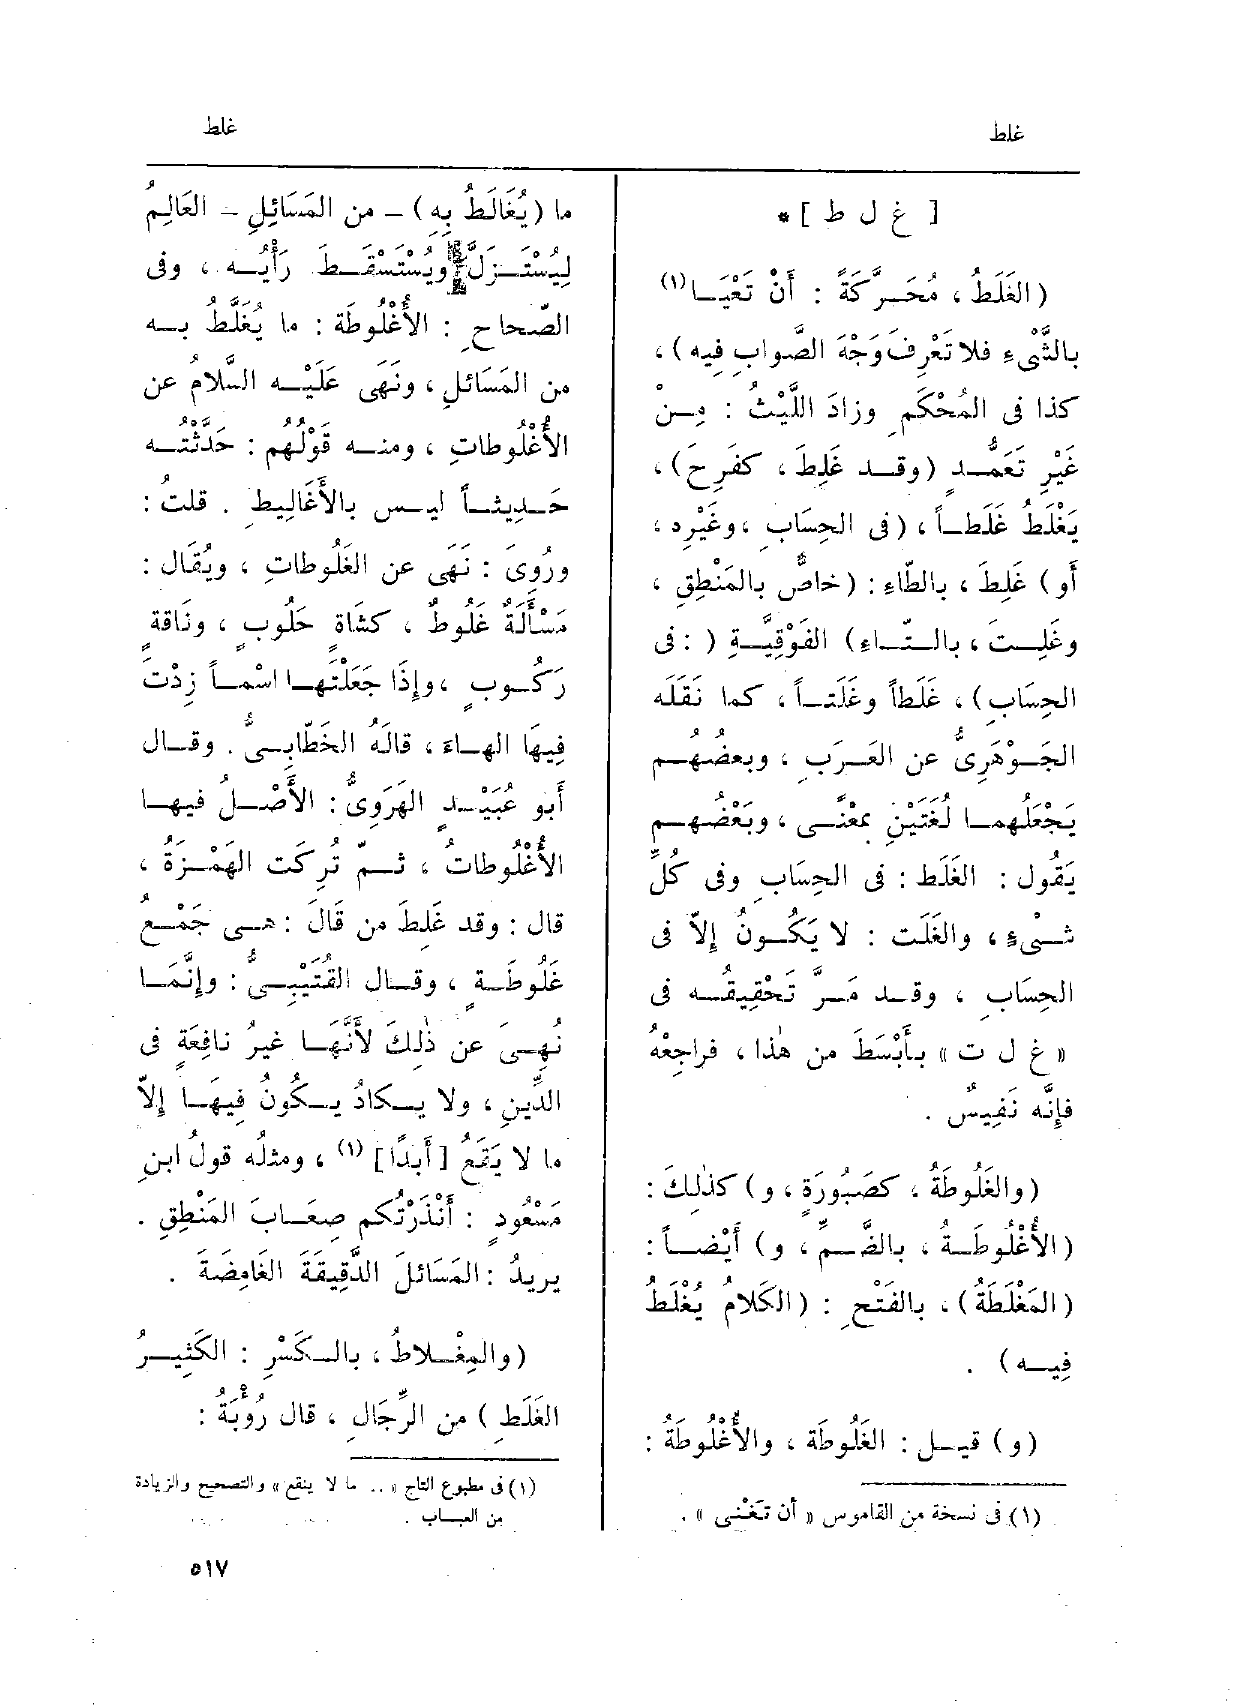 غلط
غلط
[ غ ل ط ] *
( الغَلَطُ ، مُحَرَّكَةً : أَنْ تَعْيَا (١)
بالشَّىْءِ فلا تَعْرِفَ وَجْهَ الصَّوابِ فِيه ) ،
كذا فى المُحْكَمِ وزادَ اللَّيْثُ : مِنْ
غَيْرِ تَعَمُّدٍ ( وقد غَلِطَ ، كفَرِحَ ) ،
يَغْلَطُ غَلَطاً ، ( فى الحِسَابِ ، وغَيْرِه ،
أَو ) غَلِطَ ، بالطّاءِ : ( خاصٌّ بالمَنْطِقِ ،
وغَلِتَ ، بالتّاءِ ) الفَوْقِيَّةِ ( : فى
الحِسَابِ ) ، غَلَطاً وغَلَتاً ، كما نَقَلَه
الجَوْهَرِىُّ عن العَرَبِ ، وبعضُهُم
يَجْعَلُهما لُغَتَيْنِ بمَعْنًى ، وبَعْضُهُم
يَقُول : الغَلَط : فى الحِسَابِ وفى كُلِّ
شىْءٍ ، والغَلَت : لا يَكُونُ إِلاّ فى
الحِسَابِ ، وقد مَرَّ تَحْقِيقُه فى
« غ ل ت » بأَبْسَطَ من هٰذا ، فراجِعْهُ
فإِنَّه نَفِيسٌ .
( والغَلُوطَةُ ، كصَبُورَةٍ ، و ) كذٰلِكَ :
( الأُغْلُوطَةُ ، بالضَّمِّ ، و ) أَيْضاً :
( المَغْلَطَةُ ) ، بالفَتْحِ : ( الكَلامُ يُغْلَطُ
فِيه ) .
( و ) قيل : الغَلُوطَة ، والأُغْلُوطَةُ :
(١) فى نسخة من القاموس « أن تَعْنَى » .
ما ( يُغَالَطُ بِهِ ) – من المَسَائِلِ – العَالِمُ
لِيُسْتَزَلَّ ويُسْتَسْقَطَ رَأْيُه ، وفى
الصّحاحِ : الأُغْلُوطَة : ما يُغَلَّطُ به
من المَسَائلِ ، ونَهَى عَلَيْه السَّلامُ عن
الأُغْلُوطاتِ ، ومنه قَوْلُهُم : حَدَّثْتُه
حَدِيثاً ليس بالأَغَالِيطِ . قلتُ :
ورُوِىَ : نَهَى عن الغَلُوطاتِ ، ويُقَال :
مَسْأَلَةٌ غَلُوطٌ ، كشَاةٍ حَلُوبٍ ، ونَاقةٍ
رَكُوبٍ ، وإِذَا جَعَلْتَها اسْماً زِدْتَ
فِيهَا الهاءَ ، قالَهُ الخَطّابِىُّ . وقال
أَبو عُبَيْدٍ الهَرَوِىُّ : الأَصْلُ فيها
الأُغْلُوطاتُ ، ثمّ تُرِكَت الهَمْزَةُ ،
قال : وقد غَلِطَ من قَالَ : هى جَمْعُ
غَلُوطَةٍ ، وقال القُتَيْبِىُّ : وإِنَّمَا
نُهِىَ عن ذٰلِكَ لأَنَّهَا غيرُ نافِعَةٍ فى
الدِّينِ ، ولا يكادُ يكُونُ فِيهَا إِلاّ
ما لا يَقَعُ [ أَبَدًا ] (١) ، ومثلُه قولُ ابنِ
مَسْعُودٍ : أَنْذَرْتُكم صِعَابَ المَنْطِقِ .
يريدُ : المَسَائلَ الدَّقِيقَةَ الغَامِضَةَ .
( والمِغْلاطُ ، بالكَسْرِ : الكَثِيرُ
الغَلَطِ ) من الرِّجَالِ ، قال رُؤْبَةُ :
(١) فى مطبوع التاج « .. ما لا ينقع » والتصحيح والزيادة
من العباب .
٥١٧